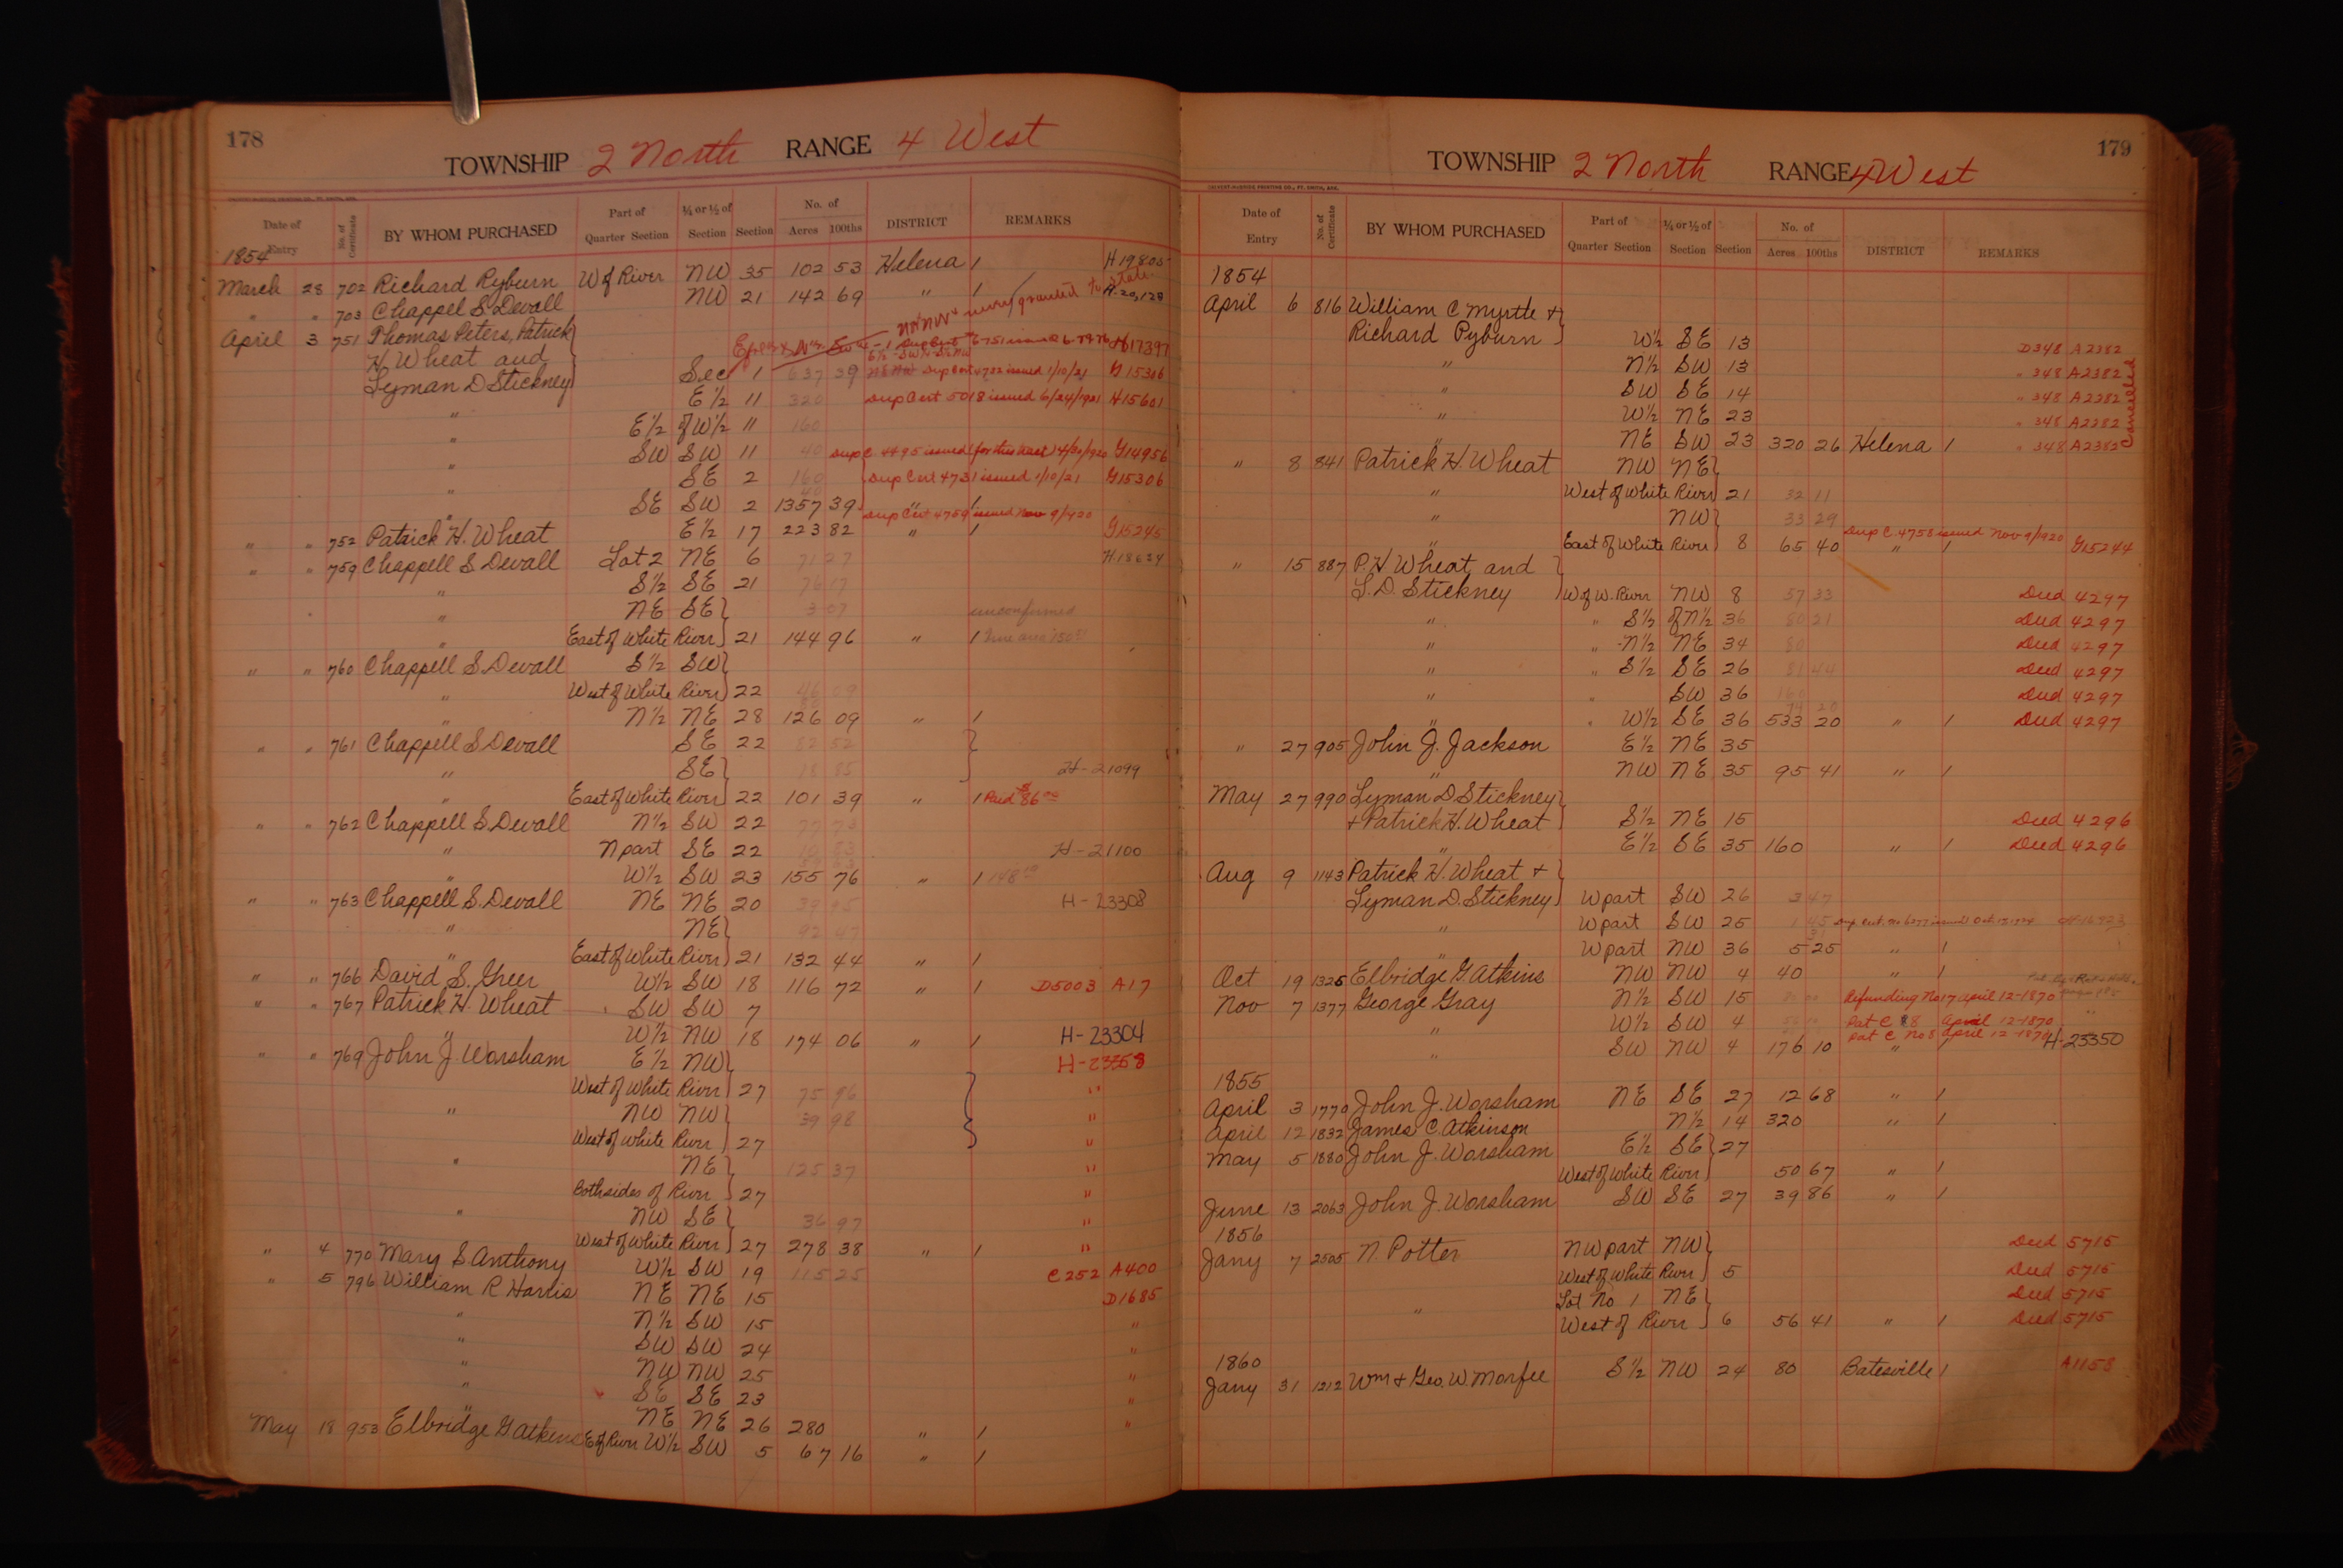 178
TOWNSHIP 2 North RANGE 4 West
Date of Entry No. of Certificate BY WHOM PURCHASED Part of Quarter Section ¼ or ½ of Section Section No. of Acres 100ths DISTRICT REMARKS
1854
March 28 702 Richard Pyburn W of River NW 35 102 53 Helena / H 19805
" " 703 Chappel S. Devall NW 21 142 69 " / H. 20,128
April 3 751 Thomas Peters, Patrick H17397
H. Wheat and
Lyman D Stickney Sec 1 637 39 Dup Cert 4732 issued 1/10/21 G 15306
" E½ 11 320 Dup Cert 5018 issued 6/24/1921 H15601
" E½ of W½ 11 160
" SW SW 11 40 Dup C. 4495 issued (for this tract) 4/30/1920 G14956
" SE 2 160 Dup Cert 4731 issued 1/10/21 G15306
" SE SW 2 1357 39 " /
" " 752 Patrick H. Wheat E½ 17 223 82 " / Dup Cert 4759 issued Nov 9/1920 G15245
" " 759 Chappell S. Devall Lot 2 NE 6 71 27 H.18624
" S½ SE 21 76 17
" NE SE} 3 07 unconfirmed
" East of White River} 21 144 96 " /
" " 760 Chappell S. Devall S½ SW}
" West of White River} 22 46 09
" N½ NE 28 126 09 " /
" " 761 Chappell S. Devall SE 22 82 52
" SE} 18 85 H-21099
" East of White River} 22 101 39 " / Paid $86.00
" " 762 Chappell S. Devall N½ SW 22 77 73
" N part SE 22 H-21100
" W½ SW 23 155 76 " /
" " 763 Chappell S. Devall NE NE 20 39 95 H-23308
" NE} 92 47
" East of White River} 21 132 44 " /
" " 766 David S. Greer W½ SW 18 116 72 " / D5003 A17
" " 767 Patrick H. Wheat SW SW 7
" W½ NW 18 174 06 " / H-23304
" " 769 John J. Worsham E½ NW} H-23358
West of White River} 27 75 96 "
" NW NW} 39 98 "
West of White River} 27 "
" NE} 125 37 "
Both sides of River} 27 "
" NW SE} 36 97 "
West of White River} 27 278 38 " / "
" 4 770 Mary S Anthony W½ SW 19 115 25 C252 A400
" 5 796 William R Harris NE NE 15 D1685
" N½ SW 15 "
" SW SW 24 "
" NW NW 25 "
" SE SE 23 "
" NE NE 26 280 " / "
May 18 953 Elbridge G Atkins E of River W½ SW 5 67 16 " /
179
TOWNSHIP 2 North RANGE 4 West
Date of Entry No. of Certificate BY WHOM PURCHASED Part of Quarter Section ¼ or ½ of Section Section No. of Acres 100ths DISTRICT REMARKS
1854
April 6 816 William C Myrtle +
Richard Pyburn} W½ SE 13 D348 A2382
" N½ SW 13 " 348 A2382
" SW SE 14 " 348 A2382
" W½ NE 23 " 348 A2382
" NE SW 23 320 26 Helena / " 348 A2382
Canceled
" 8 841 Patrick H. Wheat NW NE}
" West of White River} 21 32 11
" NW} 33 29
" East of White River} 8 65 40 " / Dup C. 4758 issued Nov 9/1920 G15244
" 15 887 P. H Wheat and
L. D. Stickney} W of W. River NW 8 57 33 Deed 4297
" " S½ of N½ 36 80 21 Deed 4297
" " N½ NE 34 80 Deed 4297
" " S½ SE 26 81 44 Deed 4297
" " SW 36 160 Deed 4297
" " W½ SE 36 533 20 " / Deed 4297
" 27 905 John J. Jackson E½ NE 35
" NW NE 35 95 41 " /
May 27 990 Lyman D Stickney}
+ Patrick H. Wheat} S½ NE 15 Deed 4296
" E½ SE 35 160 " / Deed 4296
Aug 9 1143 Patrick H. Wheat +
Lyman D. Stickney} W part SW 26 3 47
" W part SW 25
" W part NW 36 5 25 " /
Oct 19 1325 Elbridge G. Atkins NW NW 4 40 " /
Nov 7 1377 George Gray N½ SW 15 Refunding No 17 April 12-1870
" W½ SW 4 Pat C 88 April 12-1870
" SW NW 4 176 10 " / Pat C No 8 April 12-1870 H-23350
1855
April 3 1770 John J. Worsham NE SE 27 12 68 " /
April 12 1832 James C. Atkinson N½ 14 320 " /
May 5 1880 John J. Worsham E½ SE} 27
West of White River} 50 67 " /
June 13 2063 John J. Worsham SW SE 27 39 86 " /
1856
Jany 7 2505 N. Potter NW part NW} Deed 5715
West of White River} 5 Deed 5715
Lot No 1 NE} Deed 5715
" West of River} 6 56 41 " / Deed 5715
1860
Jany 31 1212 Wm + Geo. W. Morfee S½ NW 24 80 Batesville / A1153